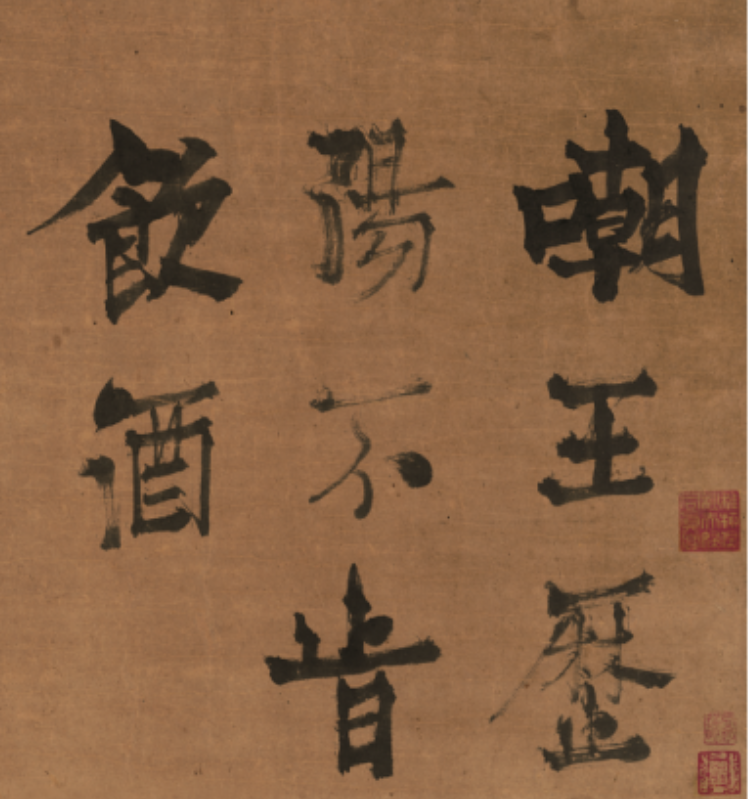 嘲王歷
陽不肯
飲酒